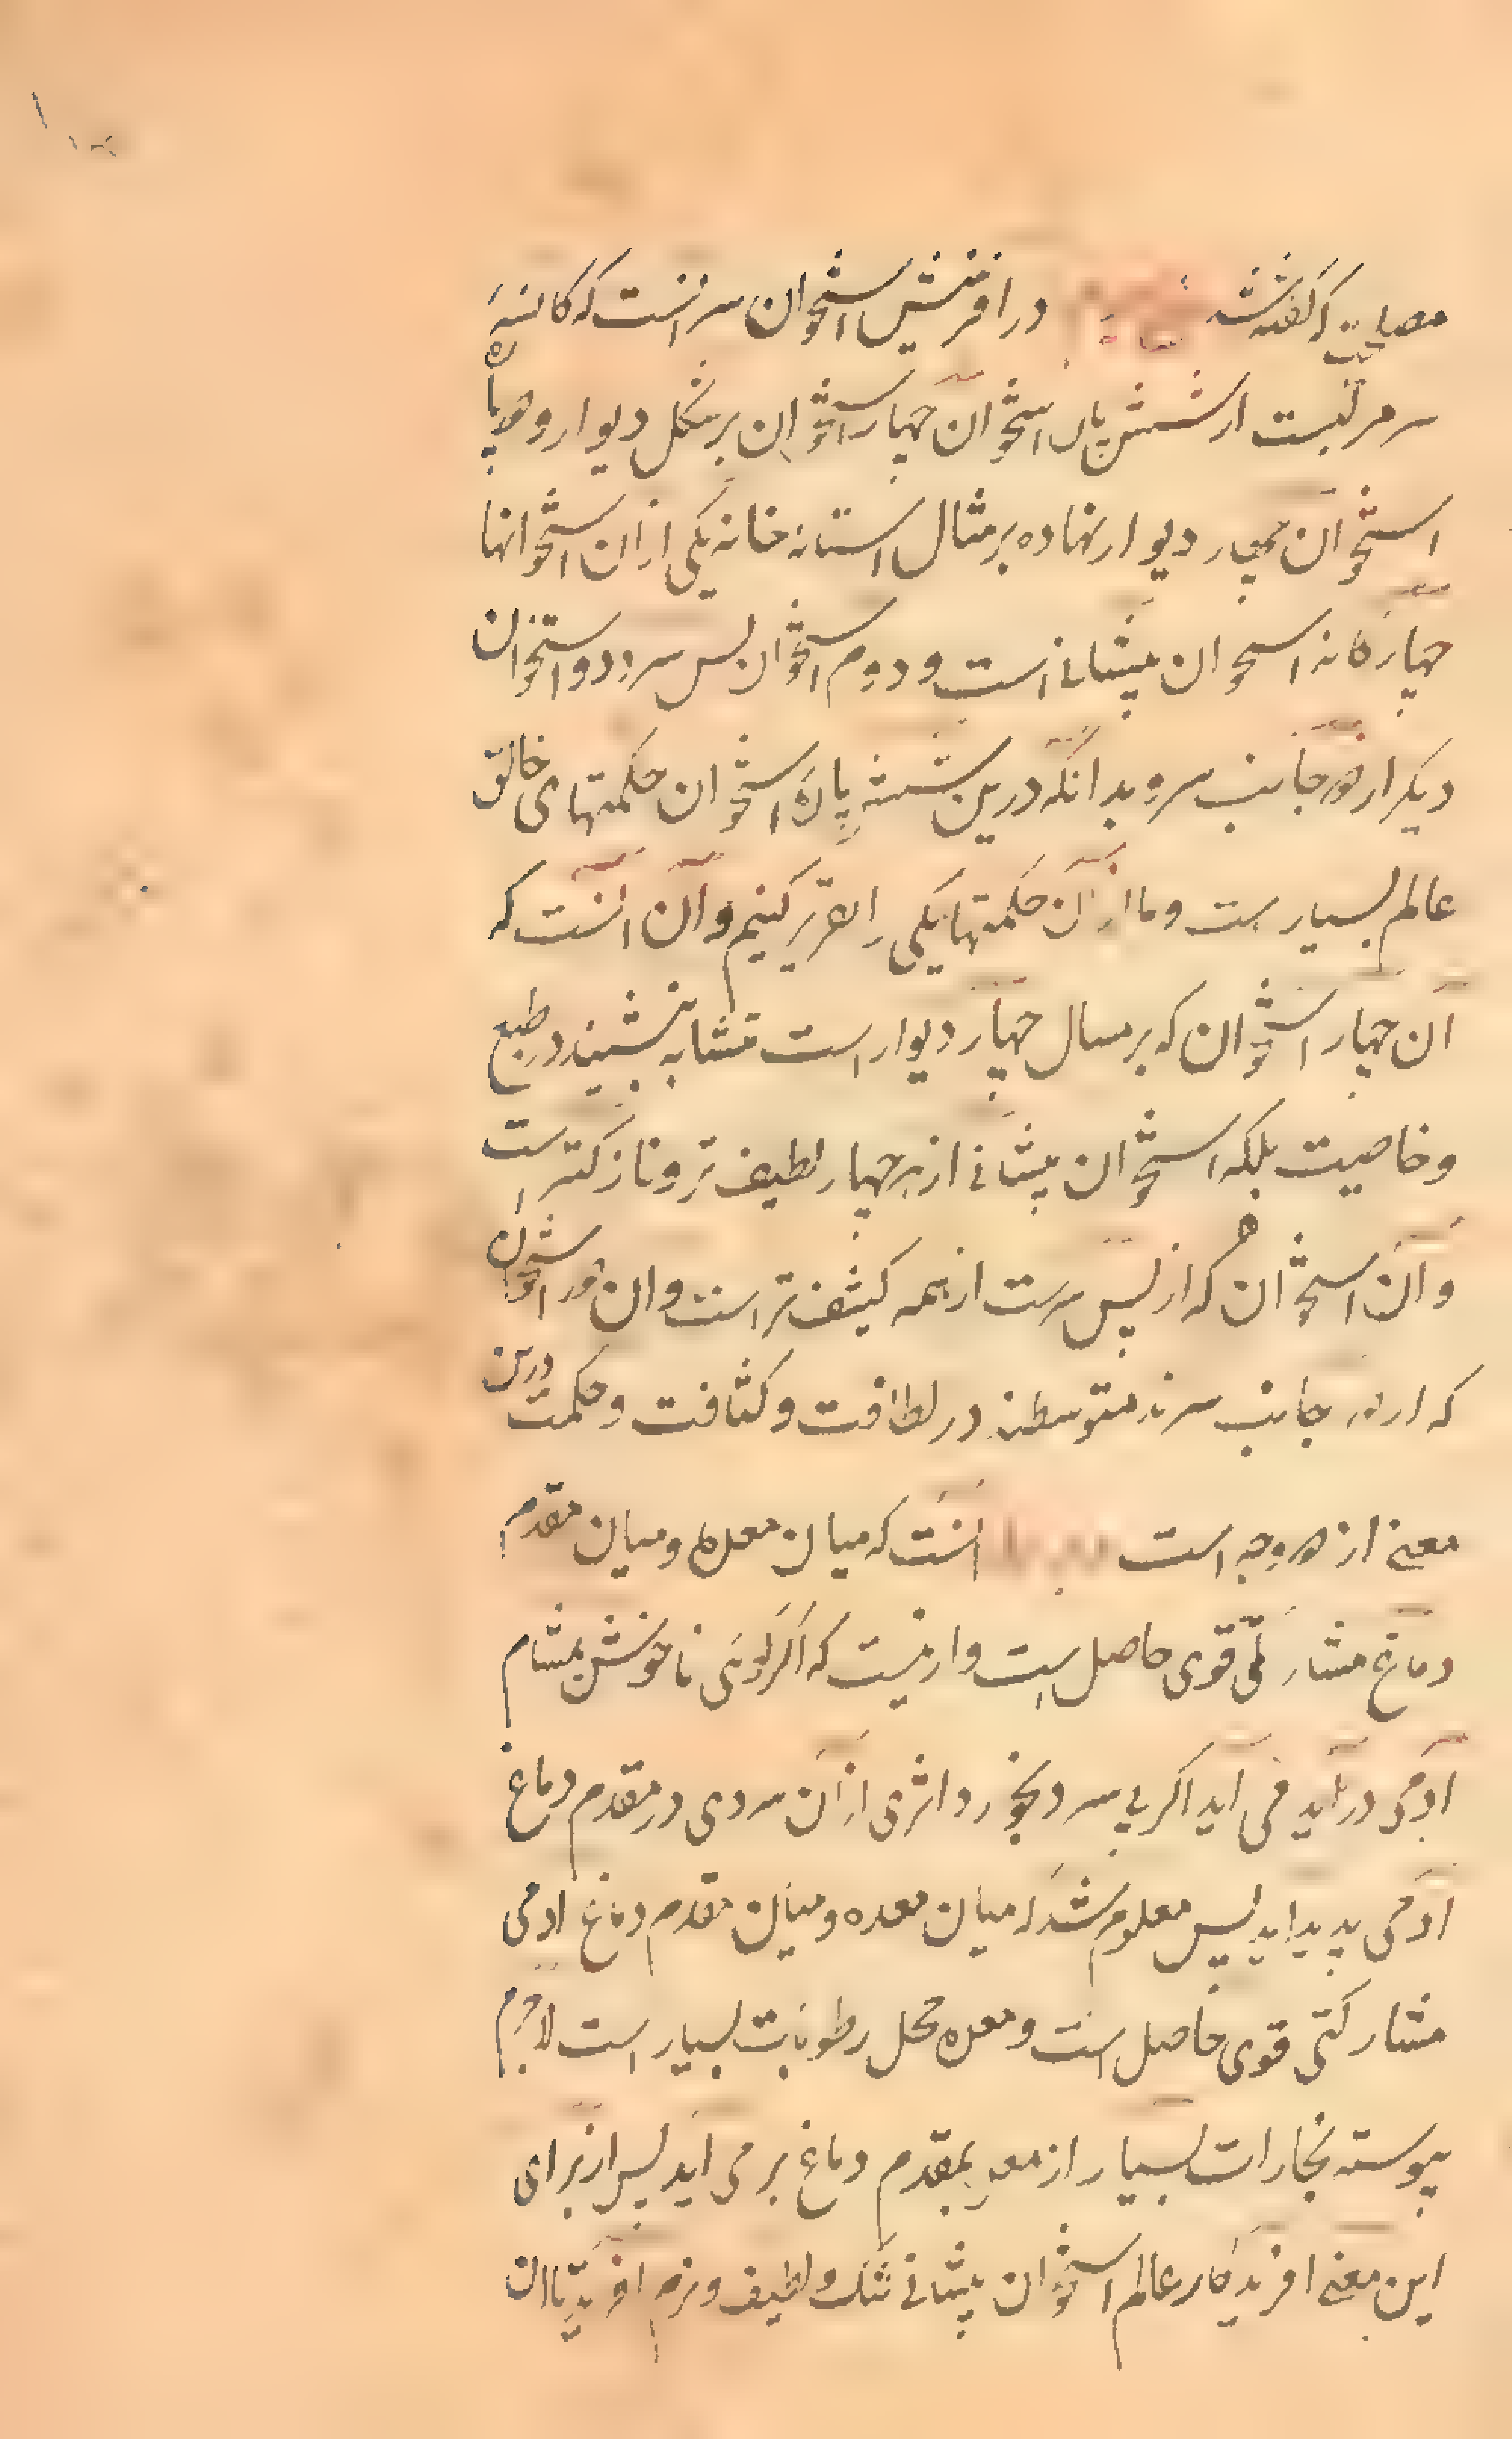 مصلحت که گفته شد در افرینش استخوان سر انست که کاسهٔ
سر مرکبست از شش پاره استخوان چهار استخوان بر شکل دیوار و دو پاره
استخوان بر چهار دیوار نهاده بر مثال استانه خانه یکی ازان استخوانها
چهارکانه استخوان پیشانی است و دوم استخوان پس سر و دو استخوان
دیکر از دو جانب سر و بدانکه درین شش پاره استخوان حکمتهای خالق
عالم بسیارست و ما از آن حکمتها یکی را تقریر کنیم و آن انست که
آن چهار استخوان که بر مثال چهار دیوار است متشابه نیستند در طبع
و خاصیت بلکه استخوان پیشانی از هر چهار لطیف تر و نازکتر است
و آن استخوان که از پس سرست از همه کثیف تر است و ان دو استخوان
که از دو جانب سرند متوسطند در لطافت و کثافت و حکمت درین
معنی از دو وجه است انست که میان معده و میان مقدم
دماغ مشارکتی قوی حاصل است و ازینست که اکر بوی ناخوش بمشام
ادمی درآید قی آید اکر یخ سرد بخورد اثری ازان سردی در مقدم دماغ
ادمی پدید اید پس معلوم شد که میان معده و میان مقدم دماغ ادمی
مشارکتی قوی حاصل است و معده محل رطوبات بسیار است لاجرم
پیوسته بخارات بسیار از معده بمقدم دماغ بر می اید پس از برای
این معنی افریدکار عالم استخوان پیشانی تنک و لطیف و نرم افرید تا ان